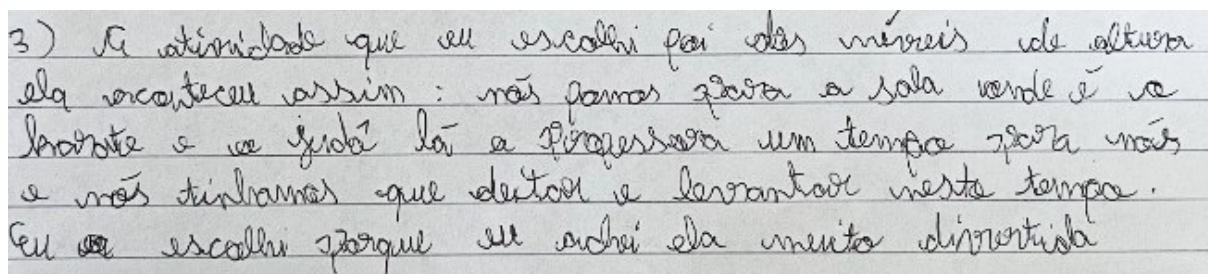 3) A atividade que eu escolhi foi dos níveis de altura
ela aconteceu assim : nós fomos para a sala onde é o
karate e o judô lá a professora um tempo para nós
e nós tinhamos que deitar e levantar neste tempo.
Eu escolhi porque eu achei ela muito divertida